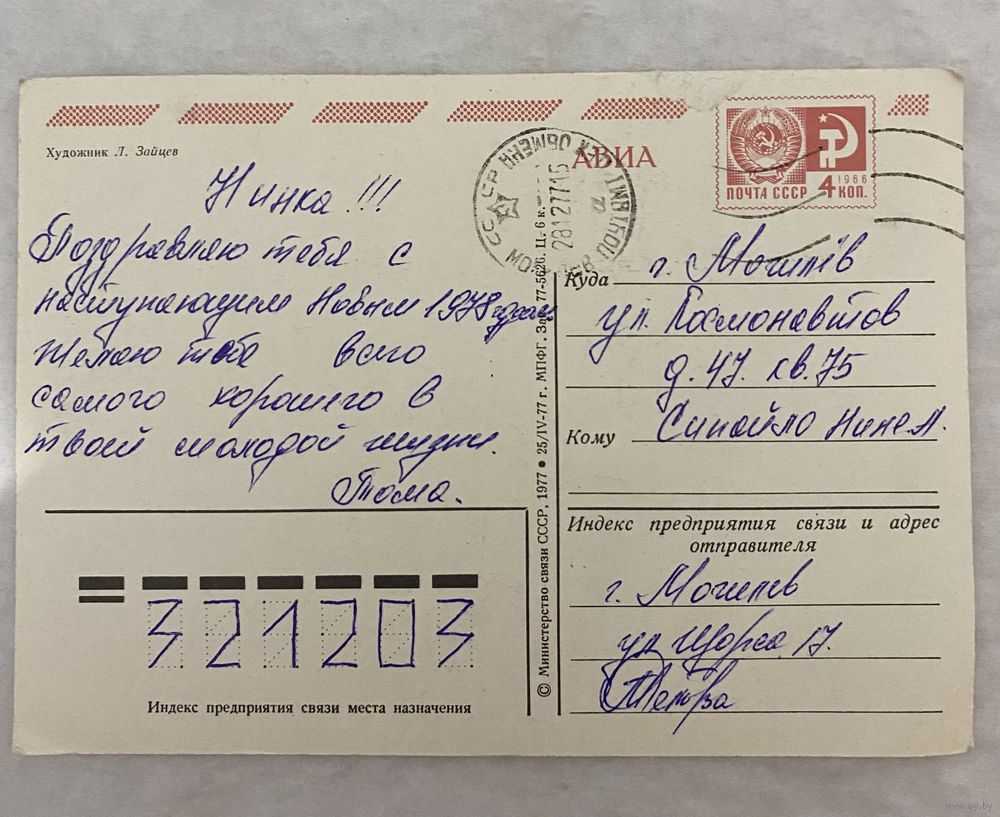 Художник Л. Зайцев
АВИА
1966
ПОЧТА СССР 4 КОП.
СССР
28127715
Нинка!!!
Поздравляю тебя с
наступающим Новым 1978 годом
Желаю тебе всего
самого хорошего в
твоей молодой жизни.
Тома.
321203
Индекс предприятия связи места назначения
© Министерство связи СССР, 1977 • 25/IV-77 г. МПФГ. Зак. 77-5626. Ц. 6 к.
Куда г. Могилёв
ул. Космонавтов
д. 47. кв. 75
Кому Синойло Нине Л.
Индекс предприятия связи и адрес
отправителя
г. Могилев
ул Щорса 17.
www.ay.by